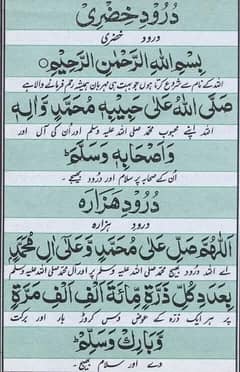 دُرُودِ خِضْرِی
درود خضری
بِسْمِ اللهِ الرَّحْمٰنِ الرَّحِيْمِ
اللہ کے نام سے شروع کرتا ہوں جو بہت ہی مہربان ہمیشہ رحم فرمانے والا ہے
صَلَّى اللهُ عَلٰى حَبِيْبِهٖ مُحَمَّدٍ وَّاٰلِهٖ
اللہ اپنے محبوب محمد صلی اللہ علیہ وسلم اور اُن کی آل اور
وَاَصْحَابِهٖ وَسَلَّمَ
اُن کے صحابہ پر سلام اور درود بھیجے۔
دُرُودِ هَزَارَه
درود ہزارہ
اَللّٰهُمَّ صَلِّ عَلٰى مُحَمَّدٍ وَّعَلٰى اٰلِ مُحَمَّدٍ
اے اللہ درود بھیج محمد صلی اللہ علیہ وسلم پر اور آل محمد صلی اللہ علیہ وسلم
بِعَدَدِ كُلِّ ذَرَّةٍ مِّائَةَ اَلْفِ اَلْفِ مَرَّةٍ
پر ہر ایک ذرہ کے عوض دس کروڑ بار اور برکت
وَّبَارِكْ وَسَلِّمْ
دے اور سلام بھیج۔